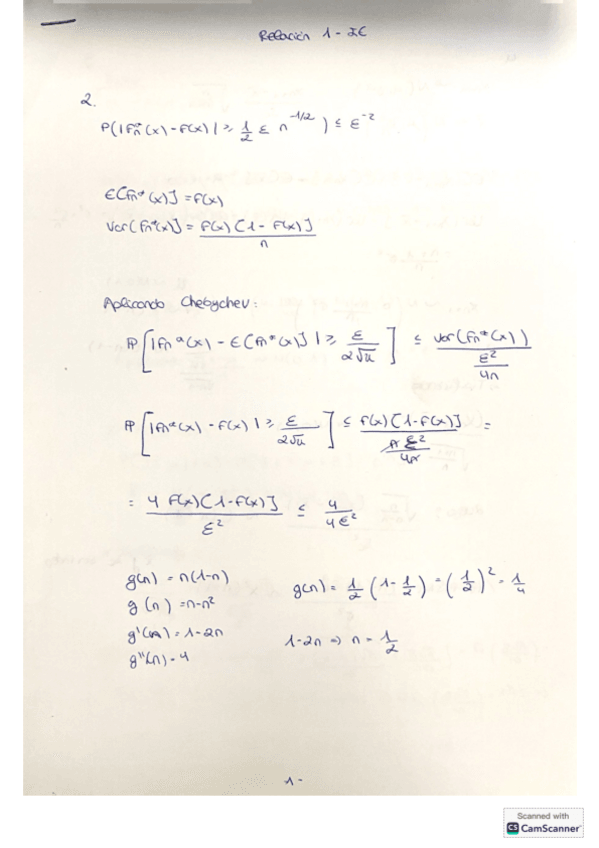 Relación 1 - IE
2.
P(|Fn*(x) - F(x)| ≥ 1/2 ε n^-1/2) ≤ ε^-2
E[Fn*(x)] = F(x)
Var[Fn*(x)] = F(x)[1 - F(x)] / n
Aplicando Chebychev:
P[|Fn*(x) - E[Fn*(x)]| ≥ ε/2√n] ≤ Var(Fn*(x)) / (ε²/4n)
P[|Fn*(x) - F(x)| ≥ ε/2√n] ≤ F(x)[1-F(x)] / (n ε²/4n) =
= 4 F(x)[1-F(x)] / ε² ≤ 4/4ε²
g(n) = n(1-n)
g(n) = 1/2 (1 - 1/2) = (1/2)² = 1/4
g(n) = n-n²
g'(n) = 1-2n
1-2n ⇒ n = 1/2
g''(n) = 4
1-
Scanned with
CS CamScanner